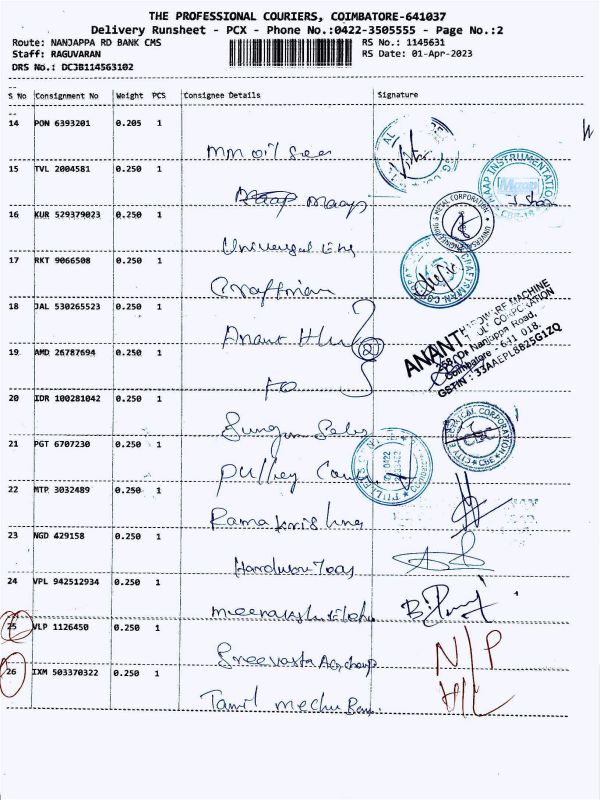 THE PROFESSIONAL COURIERS, COIMBATORE-641037
Delivery Runsheet - PCX - Phone No.:0422-3505555 - Page No.:2
Route: NANJAPPA RD BANK CMS
RS No.: 1145631
Staff: RAGUVARAN
RS Date: 01-Apr-2023
DRS No.: DCJB114563102
S No Consignment No Weight PCS Consignee Details Signature
14 PON 6393201 0.205 1
15 TVL 2004581 0.250 1
Maap
MAAP INSTRUMENTATION
Maap
CBE-18
16 KUR 529379023 0.250 1
Universal Eng
17 RKT 9066508 0.250 1
Craftman
CRAFTSMAN CORPORATION
18 JAL 530265523 0.250 1
Anant H
2
ANANT HARDWARE MACHINE
TOOLS CORPORATION
Nanjappa Road,
Coimbatore - 641 018.
GSTIN : 33AAEPL8825G1ZQ
19 AMD 26787694 0.250 1
20 IDR 100281042 0.250 1
Sales
ELECTRICAL CORPORATION
CITY
CBE
21 PGT 6707230 0.250 1
Pulley
22 MTP 3032489 0.250 1
Ramakrishna
23 NGD 429158 0.250 1
Hardware Toos
24 VPL 942512934 0.250 1
25 VLP 1126450 0.250 1
N/P
26 IXM 503370322 0.250 1
Tamil